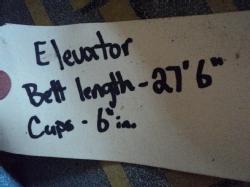 Elevator
Belt length - 27'6"
Cups - 6" in.